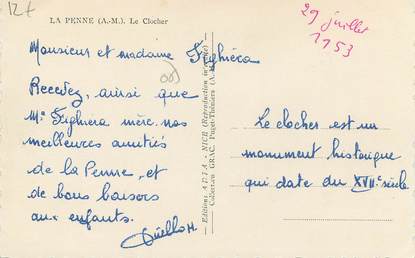 12 f
LA PENNE (A.-M.). Le Clocher
29 juillet
1953
Monsieur et madame Fighiera
Recevez, ainsi que
Me Fighiera mère nos
meilleures amitiés
de la Penne, et
de bons baisers
aux enfants.
Editions ADIA - NICE (Reproduction interdite)
Collection GRAC, Puget-Théniers (A.-M.)
Le clocher est un
monument historique
qui date du XVIIe siècle